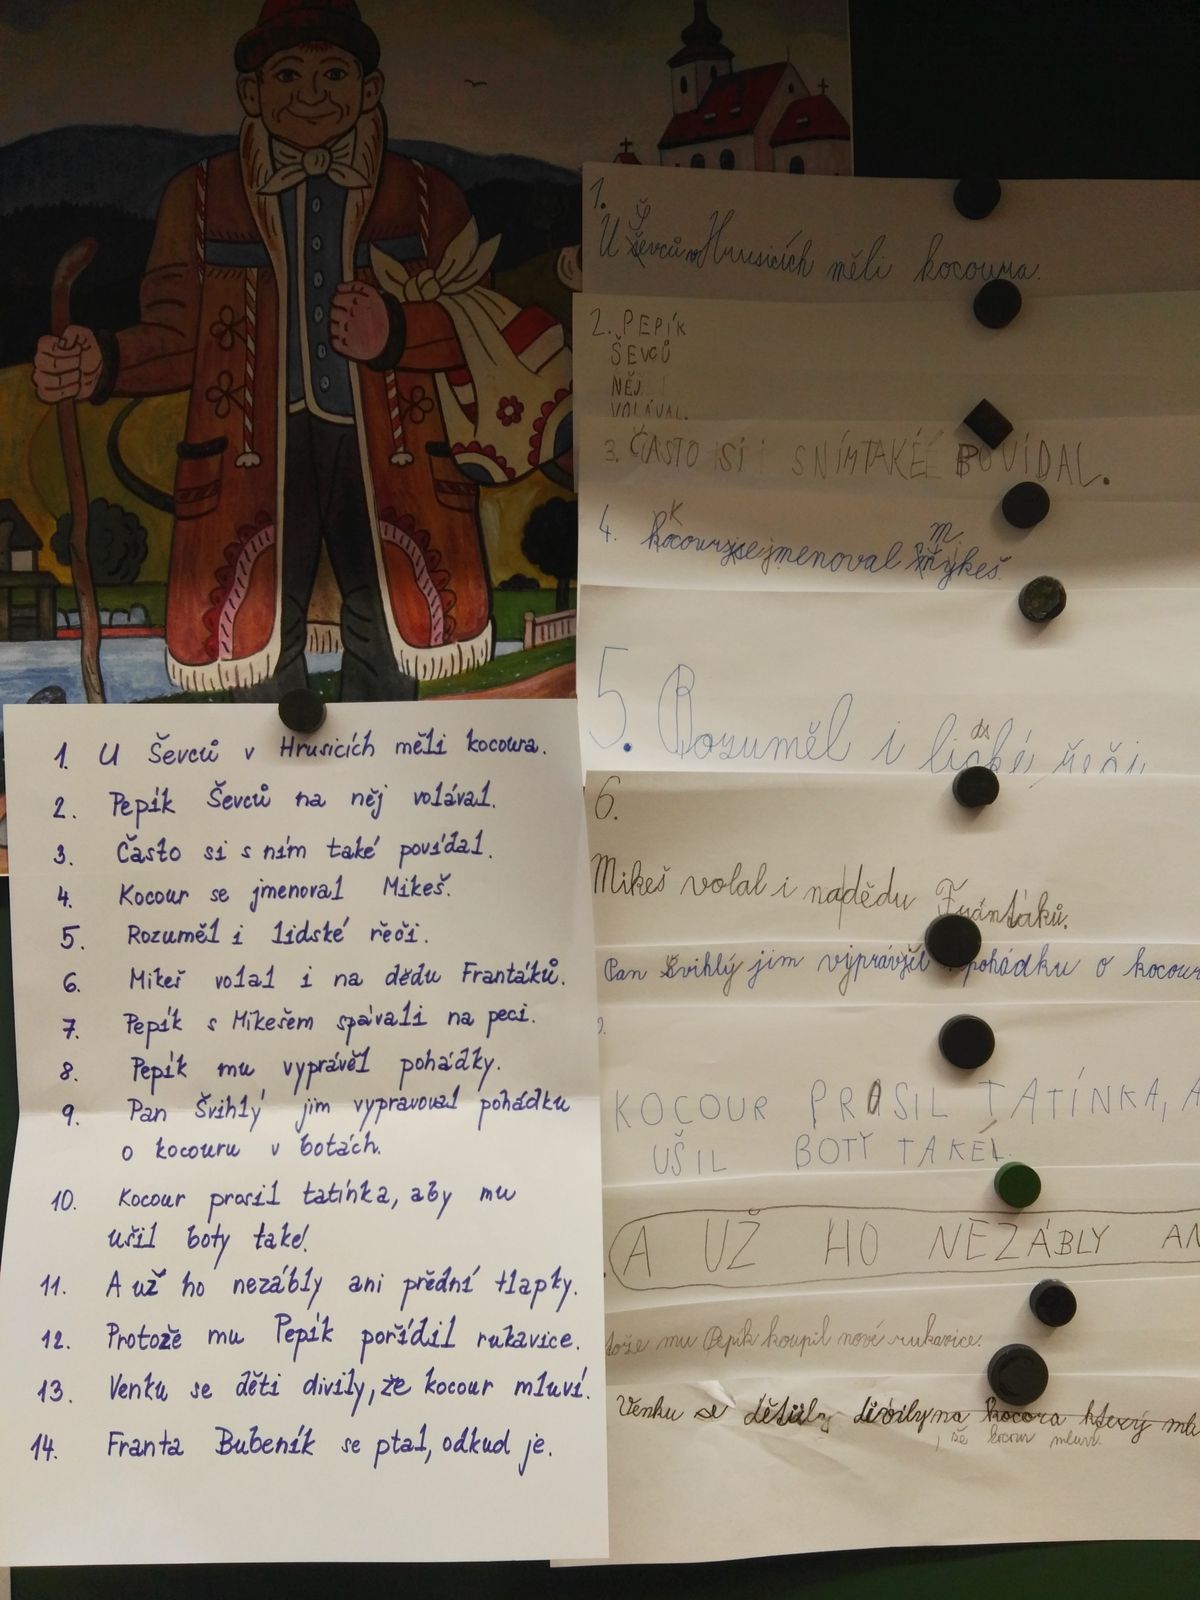 1. U Ševců v Hrusicích měli kocoura.
2. Pepík Ševců na něj volával.
3. Často si s ním také povídal.
4. Kocour se jmenoval Mikeš.
5. Rozuměl i lidské řeči.
6. Mikeš volal i na dědu Frantáků.
7. Pepík s Mikešem spávali na peci.
8. Pepík mu vyprávěl pohádky.
9. Pan Švihlý jim vypravoval pohádku
o kocouru v botách.
10. Kocour prosil tatínka, aby mu
ušil boty také!
11. A už ho nezábly ani přední tlapky.
12. Protože mu Pepík pořídil rukavice.
13. Venku se děti divily, že kocour mluví.
14. Franta Bubeník se ptal, odkud je.
1.
U Ševců v Hrusicích měli kocoura.
2. PEPÍK
ŠEVCŮ
NĚJ
VOLÁVAL.
3. ČASTO SI SNÍMTAKÉ POVÍDAL.
4. Kocour se jmenoval Mykeš
5. Rozuměl i lické řeči
ds
6.
Mikeš volal i na dědu Frantáků.
Pan Švihlý jim pohádku o kocour
KOCOUR PROSIL TATÍNKA, A
UŠIL BOTY TAKÉ
A UŽ HO NEZÁBLY AN
tože mu Pepík koupil nové rukavice.
Venku se divily na kocora který mlu
kocour mluví.